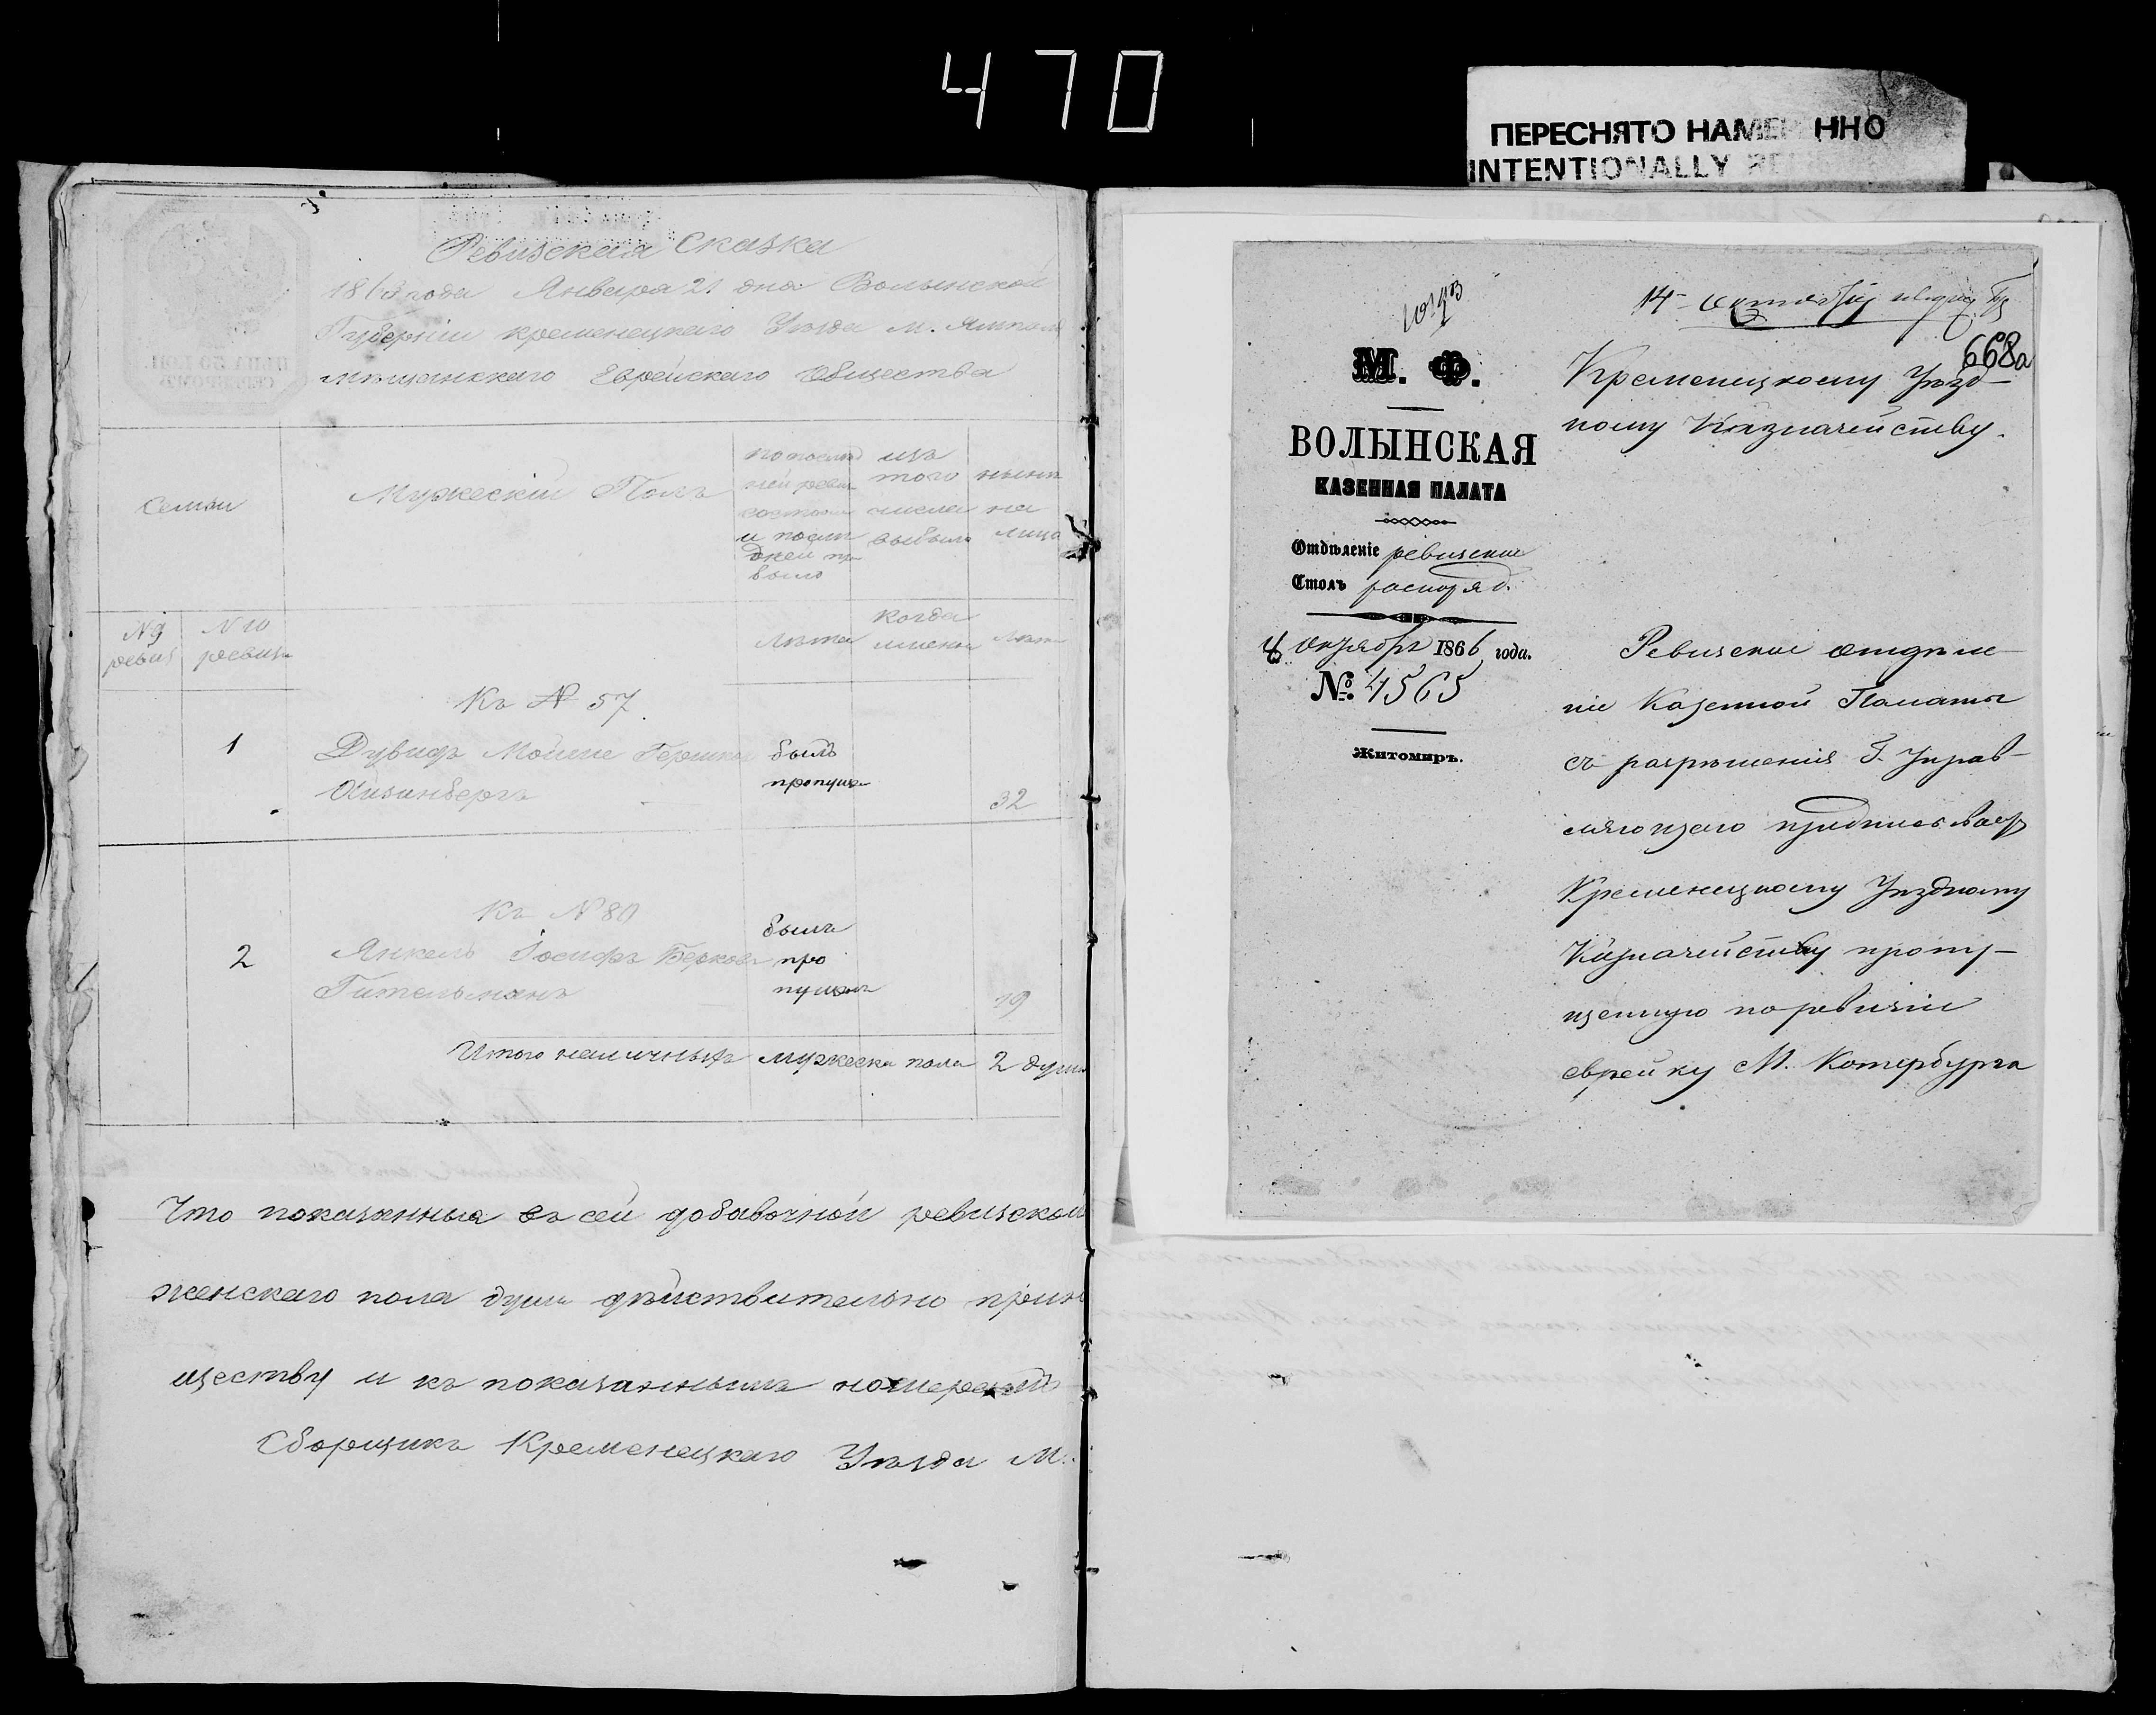 470
ПЕРЕСНЯТО НАМЕР ННО
INTENTIONALLY RE
Ревизская Сказка
1863 года Января 21 дня Волынской
Губерніи кременецкаго Уѣзда м. Ямполя
мѣщанскаго Еврейскаго Общества
семьи
Мужескій Полъ
по послѣд
ней реви
состояло
и послѣ
дней пр
было
изъ
того
числа
выбыло
нынѣ
на
лицо
№ 9
ревиз
№ 10
ревизи
лѣта
когда
именно
лѣт
Къ № 57
1
Дувидъ Мойше Гершков
Айзинбергъ
былъ
пропущен
32
Къ № 80
2
Янкель Іосифъ Берков
Гительманъ
былъ
про
пущенъ
19
Итого наличныхъ мужеска пола 2 души
Что показанныя въ сей добавочной ревизской
женскаго пола души дѣйствительно прин
ществу и къ показаннымъ номерамъ
Сборщикъ Кременецкаго Уѣзда М.
668а
М. Ф.
ВОЛЫНСКАЯ
КАЗЕННАЯ ПАЛАТА
Отдѣленіе ревизское
Столъ распоряд.
октября 1866 года.
№ 4565
Житомиръ.
Кременецкому Уѣзд-
ному Казначейству.
Ревизское отдѣле-
ніе Казенной Палаты
съ разрѣшенія Г. Управ-
ляющаго предписываетъ
Кременецкому Уѣздному
Казначейству пропу-
щенную по ревизіи
еврейку М. Котербурга